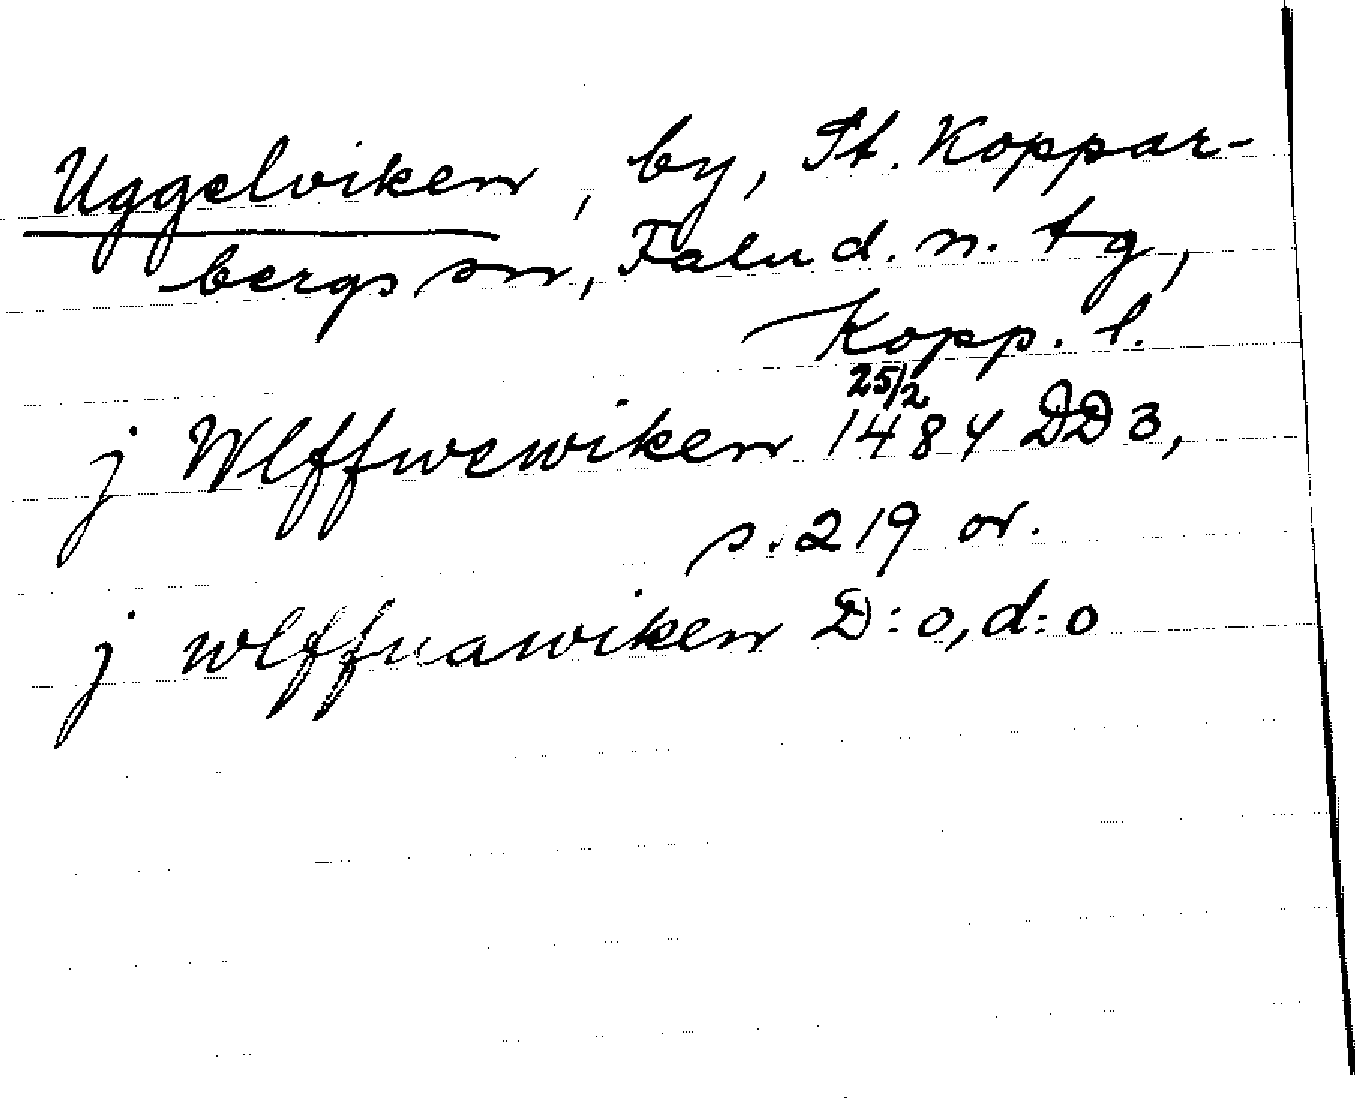 Uggelviken, by, St. Koppar-
bergs sn, Falu d. n. tg,
Kopp. l.
j Wlffwewiken 25/2 1484 DD 3,
s. 219 or.
j wlffuawiken D:o, d:o